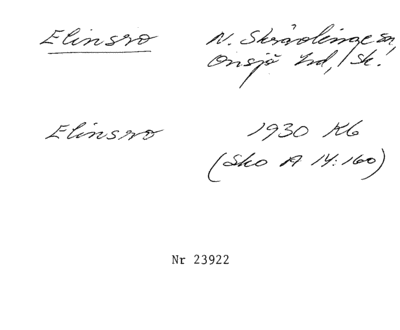 Elinsro N. Skrävlinge sn,
Onsjö hd, Sk.
Elinsro 1930 Kb
(Sko A 14:160)
Nr 23922